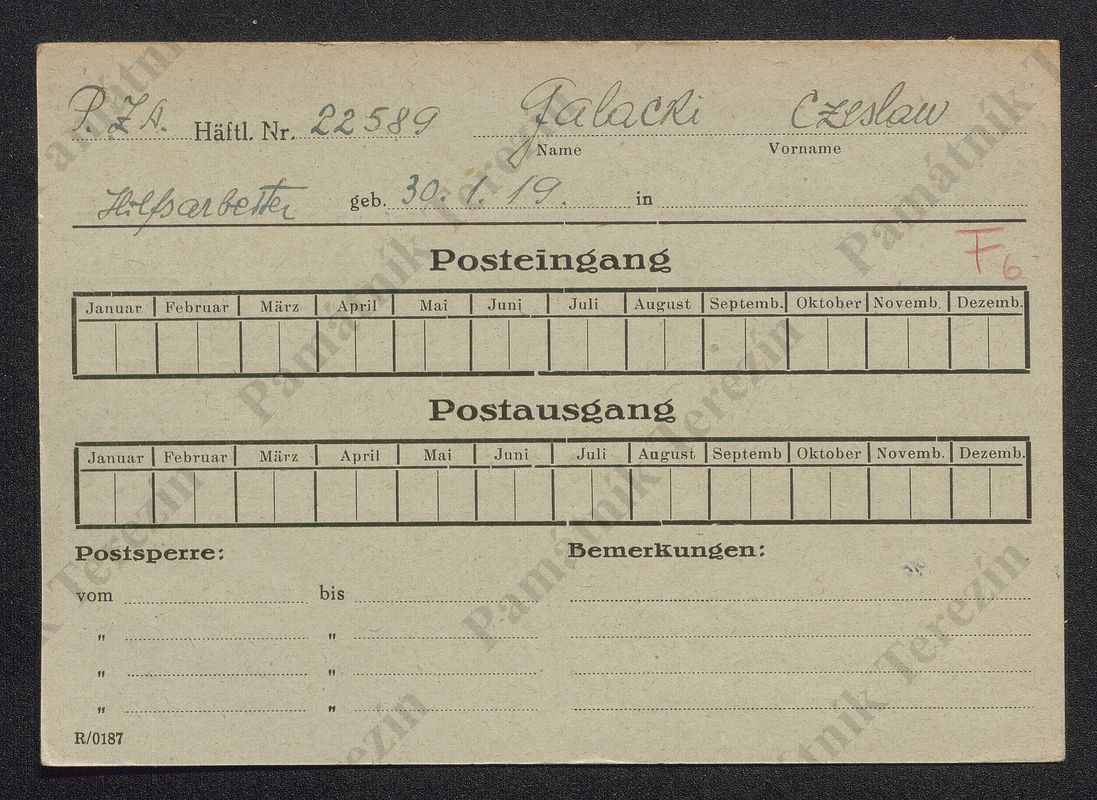 P.Z.A. Häftl. Nr. 22589 Galacki Czeslaw
Name Vorname
Hilfsarbeiter geb. 30. 1. 19. in
F6
Posteingang
Januar Februar März April Mai Juni Juli August Septemb. Oktober Novemb. Dezemb.
Postausgang
Januar Februar März April Mai Juni Juli August Septemb Oktober Novemb. Dezemb.
Postsperre: Bemerkungen:
vom bis
„ „
„ „
„ „
R/0187
Památník Terezín